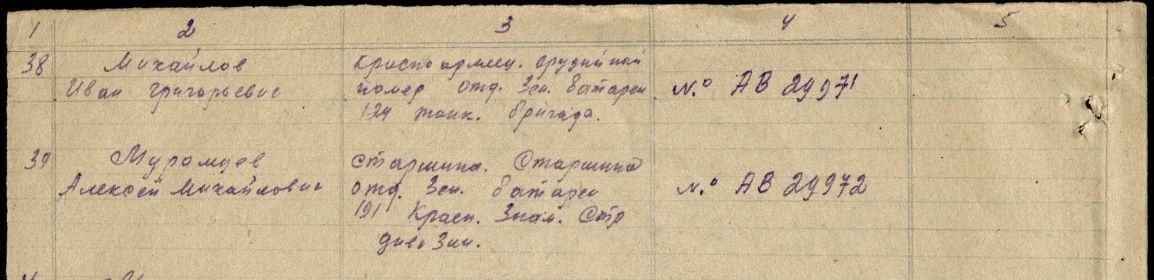 1 2 3 4 5
38 Михайлов
Иван Григорьевич
Красноармеец. орудийный
номер отд. Зен. батареи
124 танк. бригада.
№ АВ 29971
39 Муромцев
Алексей Михайлович
Старшина. Старшина
отд. Зен. батареи
191 Красн. Знам. Стр
дивизии.
№ АВ 29972